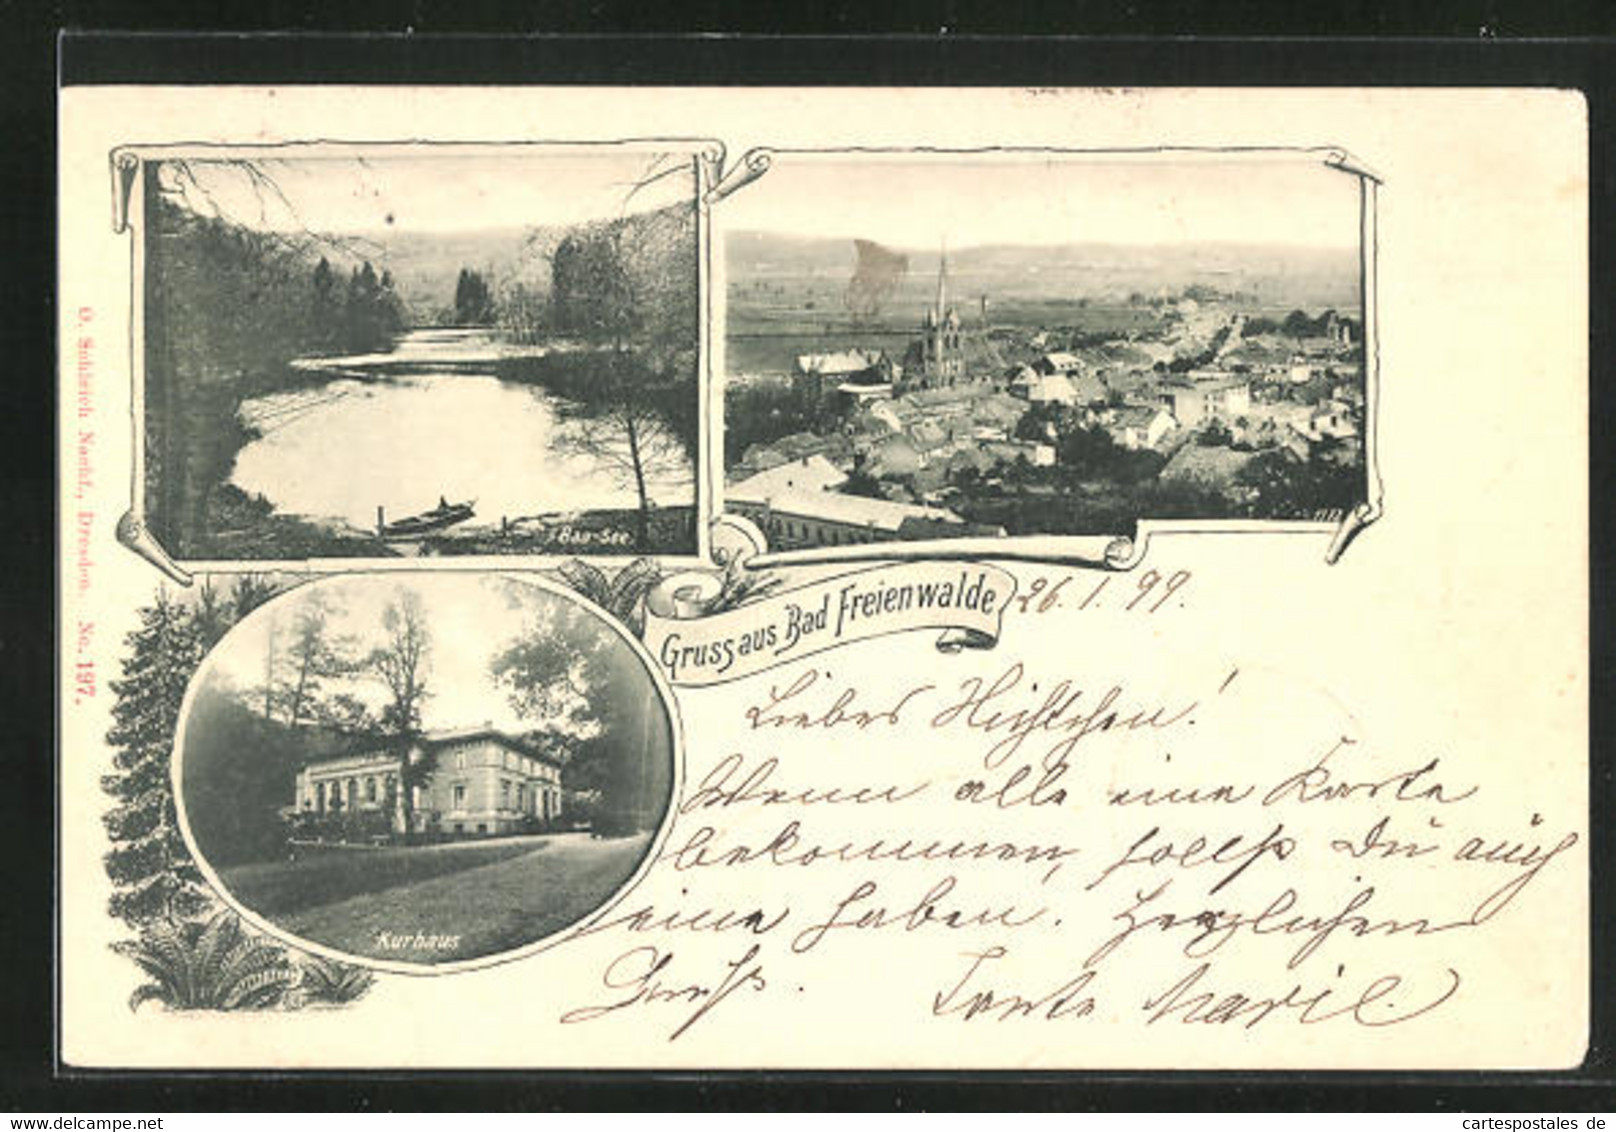 Baa-See
Gruss aus Bad Freienwalde
26. 1. 99.
Liebes
Wenn alle eine Karte
bekommen, sollst Du auch
eine haben. Herzlichen
Gruß. Tante Marie.
Kurhaus
O. Schleich Nachf., Dresden. No. 197.
delcampe.net
cartespostales de